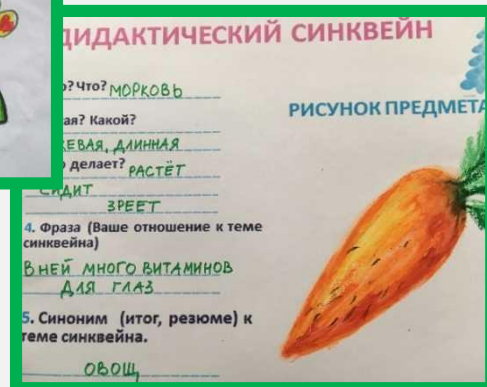 ДИДАКТИЧЕСКИЙ СИНКВЕЙН
? Что? МОРКОВЬ
РИСУНОК ПРЕДМЕТА
ая? Какой?
ЕВАЯ, ДЛИННАЯ
делает? РАСТЁТ
СИДИТ
ЗРЕЕТ
4. Фраза (Ваше отношение к теме
синквейна)
В НЕЙ МНОГО ВИТАМИНОВ
ДЛЯ ГЛАЗ
5. Синоним (итог, резюме) к
теме синквейна.
ОВОЩ